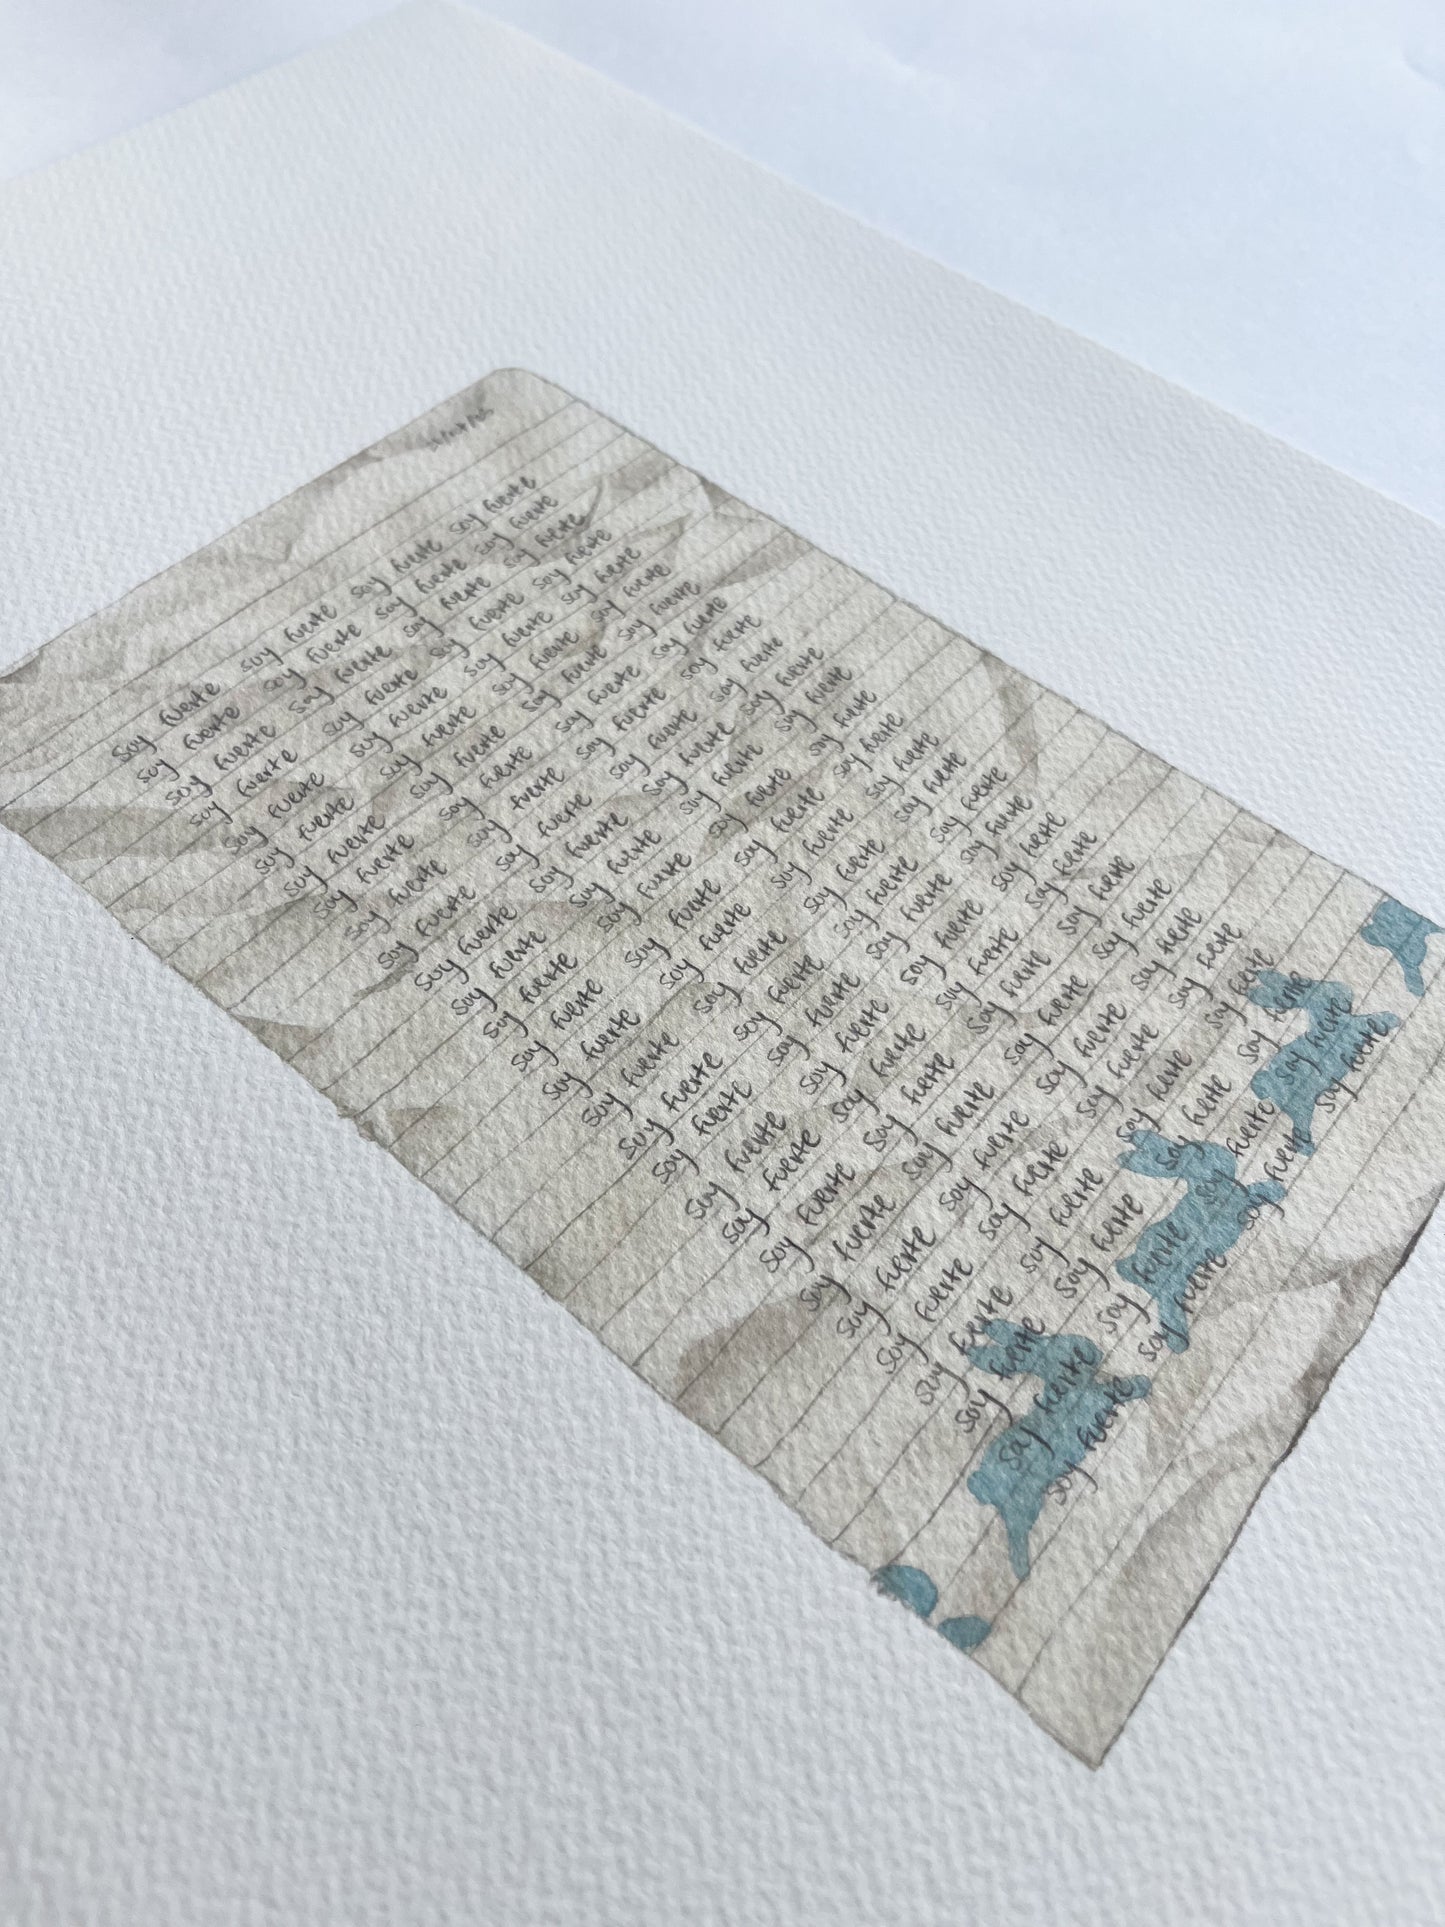 soy fuerte soy fuerte soy fuerte soy fuerte
soy fuerte soy fuerte soy fuerte soy fuerte
soy fuerte soy fuerte soy fuerte soy fuerte
soy fuerte soy fuerte soy fuerte soy fuerte
soy fuerte soy fuerte soy fuerte soy fuerte
soy fuerte soy fuerte soy fuerte soy fuerte
soy fuerte soy fuerte soy fuerte soy fuerte
soy fuerte soy fuerte soy fuerte soy fuerte
soy fuerte soy fuerte soy fuerte soy fuerte
soy fuerte soy fuerte soy fuerte soy fuerte
soy fuerte soy fuerte soy fuerte soy fuerte
soy fuerte soy fuerte soy fuerte soy fuerte
soy fuerte soy fuerte soy fuerte soy fuerte
soy fuerte soy fuerte soy fuerte soy fuerte
soy fuerte soy fuerte soy fuerte soy fuerte
soy fuerte soy fuerte soy fuerte soy fuerte
soy fuerte soy fuerte soy fuerte soy fuerte
soy fuerte soy fuerte soy fuerte soy fuerte
soy fuerte soy fuerte soy fuerte soy fuerte
soy fuerte soy fuerte soy fuerte soy fuerte
soy fuerte soy fuerte soy fuerte soy fuerte
soy fuerte soy fuerte soy fuerte soy fuerte
soy fuerte soy fuerte soy fuerte soy fuerte
soy fuerte soy fuerte soy fuerte soy fuerte
soy fuerte soy fuerte soy fuerte soy fuerte
soy fuerte soy fuerte soy fuerte soy fuerte
soy fuerte soy fuerte soy fuerte soy fuerte
soy fuerte soy fuerte soy fuerte soy fuerte